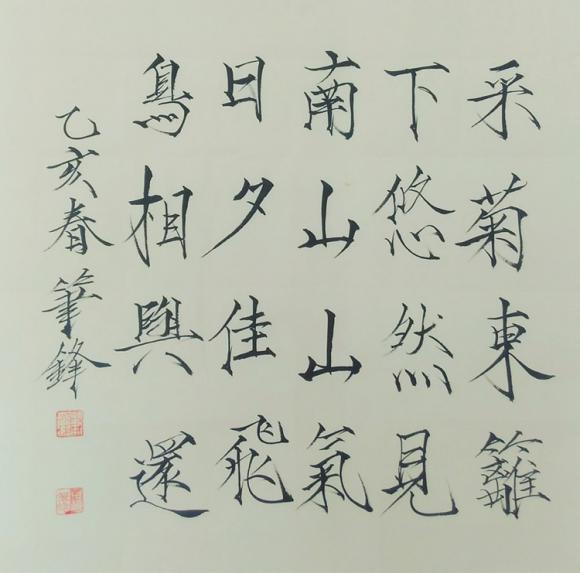 采菊東籬
下悠然見
南山山氣
日夕佳飛
鳥相與還
乙亥春筆鋒